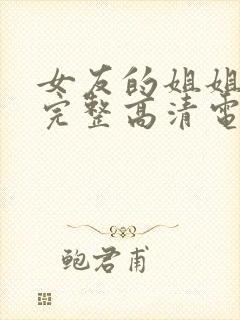 女友的姐姐
完整高清電
鲍君甫